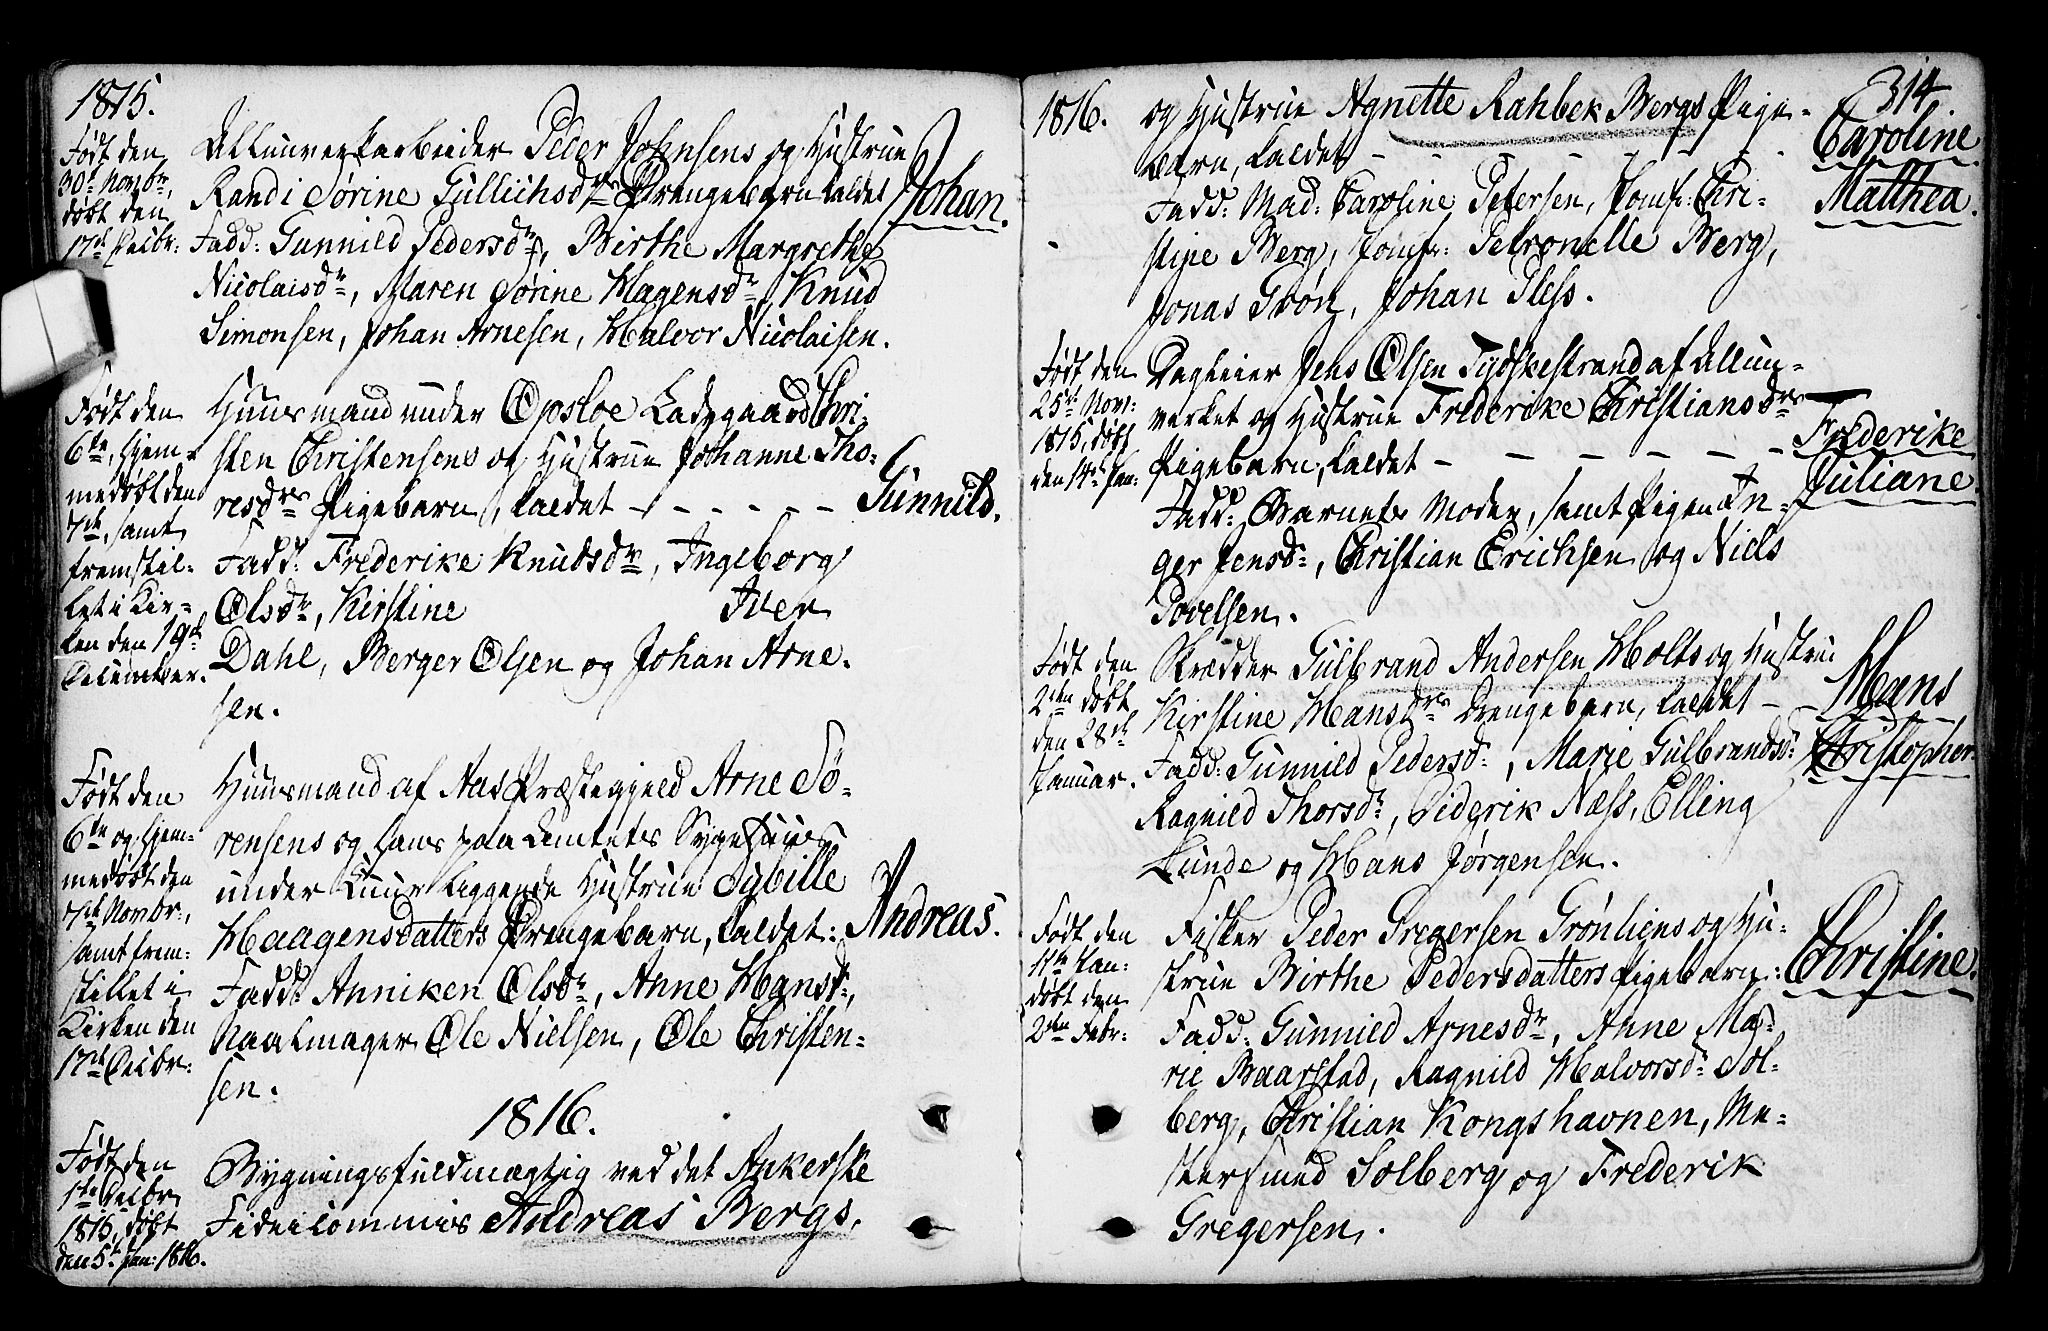 1815.
Født den
30te Novbr.,
døbt den
17de Decbr:
Alluunverkarbeider Peder Johnsens og Hustrue
Randi Sørine Gullichsdtrs Drengebarn kaldet
Johan.
Fadd: Gunnild Pedersdtr, Birthe Margrethe
Nicolaisdtr, Maren Sørine Hagensdtr, Knud
Simonsen, Johan Arnesen, Halvor Nicolaisen.
Født den
6te, hjem-
medøbt den
7de, samt
fremstil-
let i Kir-
ken den 19de
December.
Huusmand under Opsloe Ladegaard Chri-
sten Christensens og Hustrue Johanne Tho-
resdtrs Pigebarn, kaldet - - - - - -
Gunnild.
Fadd: Frederike Knudsdtr, Ingeborg
Olsdtr, Kirstine Iver
Dahl, Berger Olsen og Johan Arne-
sen.
Født den
6te og hjem-
medøbt den
7de Novbr.,
samt frem-
stillet i
Kirken den
17de Decbr:
Huusmand af Aas Præstegjeld Arne Sø-
rensens og hans paa Amtets Sygehuus
under Cuur liggende Hustrue Sybille
Haagensdatters Drengebarn, kaldet:
Andreas.
Fadd: Anniken Olsdtr, Anne Hansd:,
Naalmager Ole Nielsen, Ole Christen-
sen.
1816.
Født den
1ste Decbr
1815, døbt
den 5te Jan: 1816.
Bygningsfuldmægtig ved det Ankerske
Fideicommis Andreas Bergs,
314
1816.
og Hustrue Agnette Rahbek Bergs Pige-
barn, kaldet - - - - - - -
Caroline
Matthea.
Fadd: Mad: Caroline Petersen, Jomfr: Chri-
stine Berg, Jomfr: Petronelle Berg,
Jonas Grøn, Johan Pless.
Født den
25de Novr:
1815, døbt
den 14de Jan:
Dagleier Jens Olsen Tydskestrand af Alluun-
verket og Hustrue Frederike Christiansdtrs
Pigebarn, kaldet - - - - - - -
Frederike
Juliane.
Fadd: Barnets Moder, samt Pigen In-
ger Jensdtr, Christian Erichsen og Niels
Povelsen.
Født den
2den døbt
den 28de
Januar.
Skredder Gulbrand Andersen Holts og Hustrue
Kirstine Hansdtrs Drengebarn, kaldet - -
Hans
Christopher.
Fadd: Gunnild Pedersdtr, Marie Gulbrandsd:
Ragnild Thorsdtr, Diderik Næss, Elling
Lunde og Hans Jørgensen.
Født den
11te Jan:
døbt den
2den Febr:
Fisker Peder Gregersen Grønliens og Hu-
strue Birthe Pedersdatters Pigebarn:
Christine.
Fadd: Gunnild Arnesdtr, Anne Ma-
rie Baarstad, Ragnild Halvorsdtr Sol-
berg, Christian Kongshavnen, Me-
stersmed Solberg og Frederik
Gregersen.